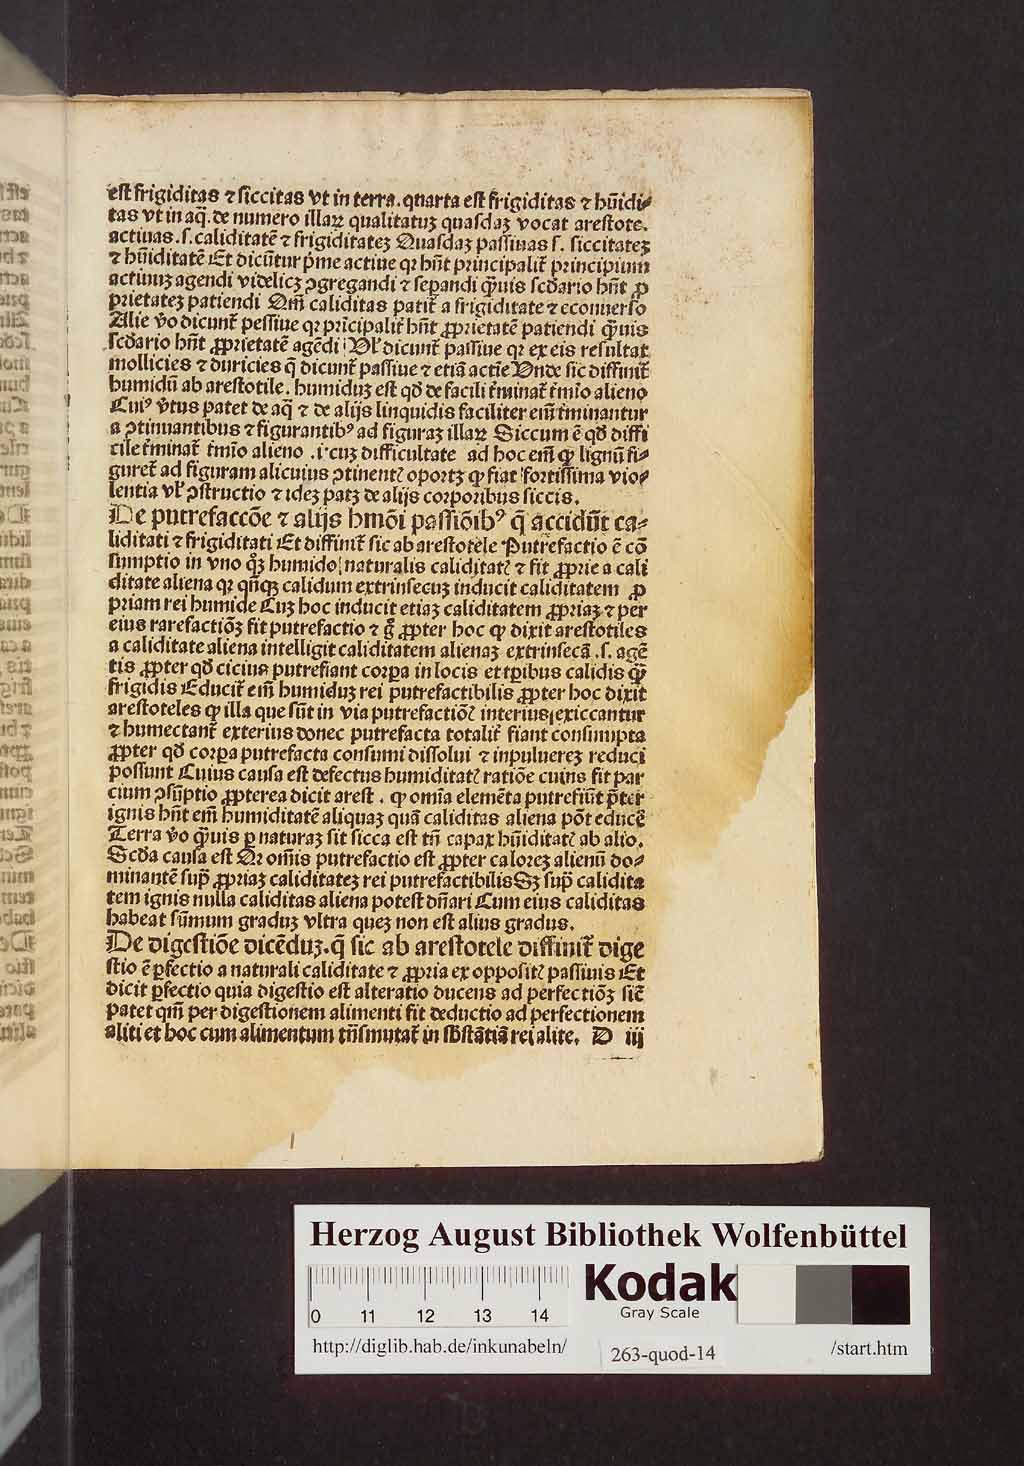 est frigiditas ⁊ siccitas vt in terra. quarta est frigiditas ⁊ hūidi-
tas vt in aq̄. de numero illaꝝ qualitatuʒ quasdaʒ vocat arestote.
actiuas .s. caliditatē ⁊ frigiditateʒ Quasdaʒ passiuas s. siccitateʒ
⁊ hūiditatē Et dicūtur p̄me actiue qꝛ hn̄t principalit̄ principium
actiuuʒ agendi videlicʒ ꝯgregandi ⁊ sepandi q̄uis scd̄ario hn̄t ꝓ
prietateʒ patiendi Qm̄ caliditas patit̄ a frigiditate ⁊ econuerso
Alie v̄o dicunt̄ pessiue qꝛ prīcipalit̄ hn̄t ꝓprietatē patiendi q̄uis
scd̄ario hn̄t ꝓprietatē agēdi Vl̄ dicunt̄ passiue qꝛ ex eis resultat
mollicies ⁊ duricies q̄ dicunt̄ passiue ⁊ etiā actie Vnde sic diffinit̄
humidū ab arestotile. humiduʒ est qd̄ de facili t̄minat̄ t̄mīo alieno
Cuiꝰ v̄tus patet de aq̄ ⁊ de alijs linquidis faciliter eni̅ t̄minantur
a ꝯtinuantibus ⁊ figurantibꝰ ad figuraʒ illaꝝ Siccum ē qd̄ diffi
cile t̄minat̄ t̄mīo alieno .i. cuʒ difficultate ad hoc em̄ ꝙ lignū fi-
guret̄ ad figuram alicuius ꝯtinentꝭ oportʒ ꝙ fiat fortissima vio-
lentia vl̄ ꝯstructio ⁊ ideʒ patʒ de alijs corporibus siccis.
De putrefaccōe ⁊ alijs hmōi passiōibꝰ q̄ accidūt ca-
liditati ⁊ frigiditati Et diffinit̄ sic ab arestotele Putrefactio ē cō
sumptio in vno qͦʒ humido naturalis caliditatꝭ ⁊ fit ꝓprie a cali
ditate aliena qꝛ qn̄qʒ calidum extrinsecuʒ inducit caliditatem ꝓ
priam rei humide Cuʒ hoc inducit etiaʒ caliditatem ꝓpriaʒ ⁊ per
eius rarefactiōʒ fit putrefactio ⁊ gͦ ꝓpter hoc ꝙ dixit arestotiles
a caliditate aliena intelligit caliditatem alienaʒ extrinsecā .s. agē
tis ꝓpter qd̄ cicius putrefiant corꝑa in locis et tꝑibus calidis q̄ʒ
frigidis Educit̄ em̄ humiduʒ rei putrefactibilis ꝓpter hoc dixit
arestoteles ꝙ illa que sūt in via putrefactiōꝭ interius exiccantur
⁊ humectant̄ exterius donec putrefacta totalit̄ fiant consumpta
ꝓpter qd̄ corꝑa putrefacta consumi dissolui ⁊ inpuluereʒ reduci
possunt Cuius causa est defectus humiditatꝭ ratiōe cuius fit par
cium ꝯsūptio ꝓpterea dicit arest. ꝙ omīa elemēta putrefiūt p̄ter
ignis hn̄t em̄ humiditatē aliquaʒ quā caliditas aliena pōt educē
Terra v̄o q̄uis ꝑ naturaʒ sit sicca est tn̄ capax hūiditatꝭ ab alio.
Scd̄a causa est Qꝛ omīs putrefactio est ꝓpter caloreʒ alienū do-
minantē sup̄ ꝓpriaʒ caliditateʒ rei putrefactibilis Sʒ sup̄ calidita
tem ignis nulla caliditas aliena potest dn̄ari Cum eius caliditas
habeat sūmum graduʒ vltra queʒ non est alius gradus.
De digestiōe dicēduʒ. q̄ sic ab arestotele diffinit̄ dige
stio ē ꝑfectio a naturali caliditate ⁊ ꝓpria ex oppositꝭ passiuis Et
dicit ꝑfectio quia digestio est alteratio ducens ad perfectiōʒ sic̄
patet qm̄ per digestionem alimenti fit deductio ad perfectionem
aliti et hoc cum alimentum trn̄smutat̄ in sb̄stātiā rei alite. D iij
Herzog August Bibliothek Wolfenbüttel
Kodak
Gray Scale
0 11 12 13 14
http://diglib.hab.de/inkunabeln/ 263-quod-14 /start.htm